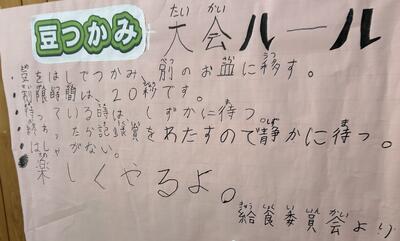 たい かい
豆つかみ 大会ルール
・豆をはしでつかみ 別のお皿に移す。
・制限時間は、20秒です。
・待っている時は、しずかに待つ。
・終わったら記録賞をわたすので静かに待つ。
・はしゃがない。
・楽しくやるよ。
きゅう しょく い いん かい
給食委員会より